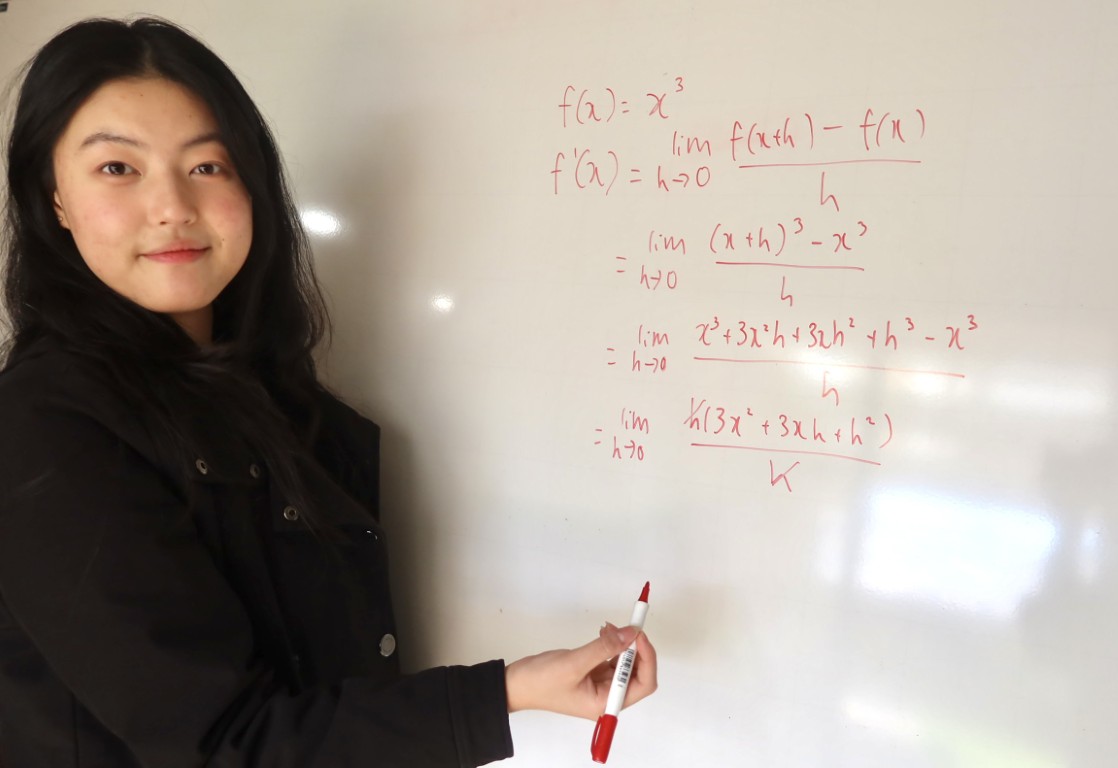 f(x) = x³
f'(x) = lim h→0 f(x+h) − f(x) / h
= lim h→0 (x+h)³ − x³ / h
= lim h→0 x³ + 3x²h + 3xh² + h³ − x³ / h
= lim h→0 h(3x² + 3xh + h²) / h